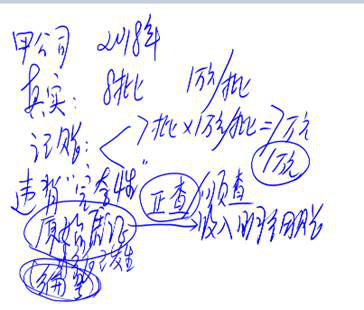 甲公司 2018年
真实: 8批 1万/批
记账: 7批×1万/批=7万元
1万元
违背"完整性"
正查/顺查
原始凭证 → 收入明细账
已发生